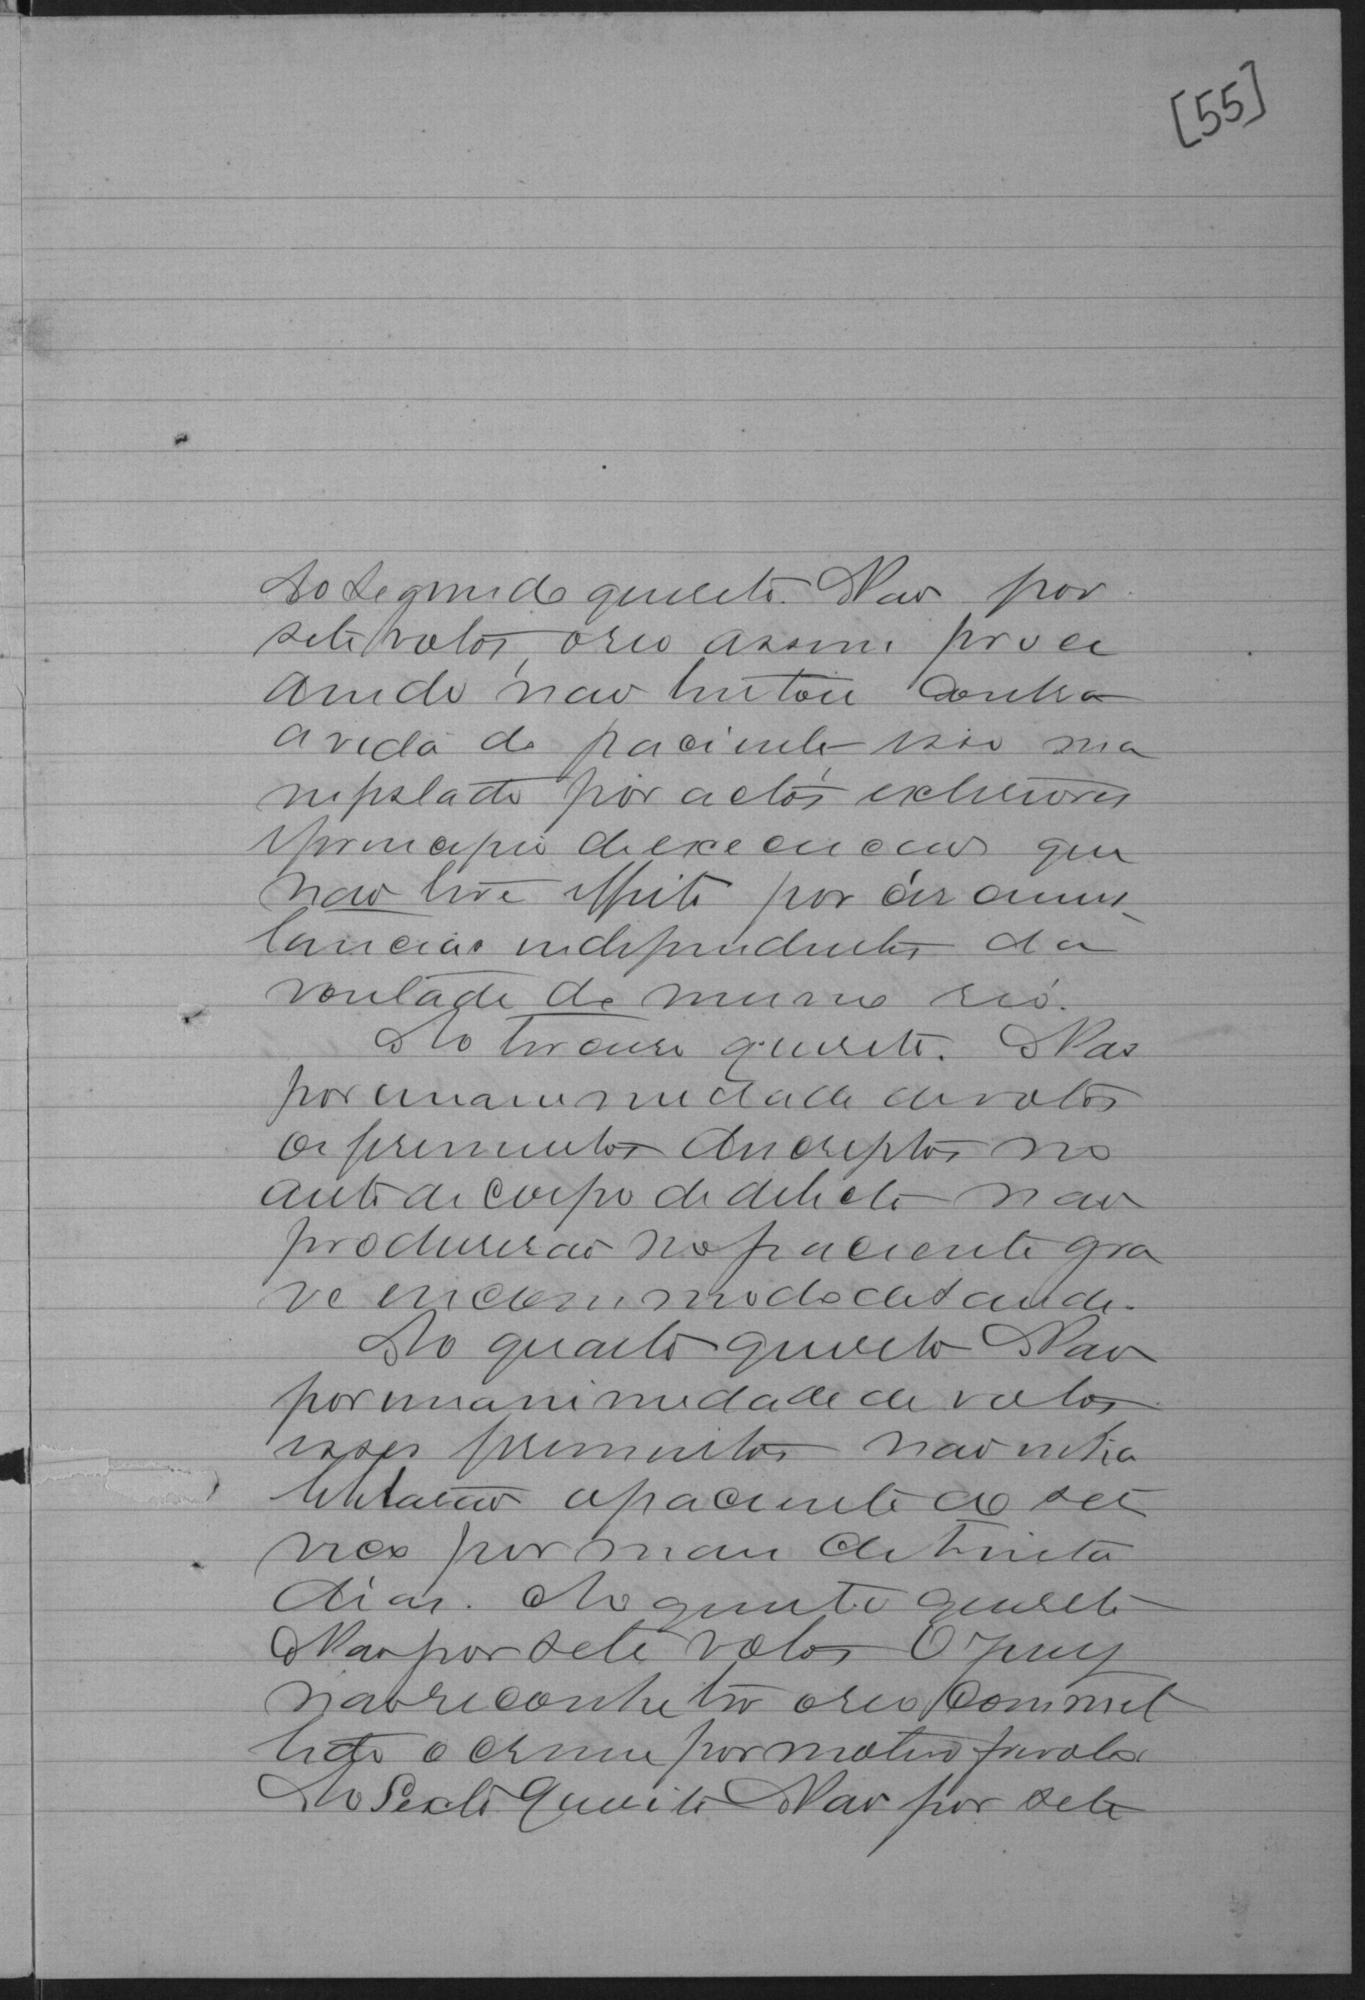 [55]
Ao Segundo quesito. Nao por
sete votos, o reo assim proce
dendo nao tentou contra
a vida do paciente, isso ma
nifestado por actos exteriores
e principio de execucao que
nao teve effeito por circums
tancias independentes da
vontade do mesmo reo.
Ao terceiro quesito. Nao
por unanimidade de votos
os ferimentos descriptos no
auto de Corpo de delicto nao
produsirao no paciente gra
ve encommodo de saude.
Ao quarto quesito Nao
por unanimidade de votos
esses ferimentos nao inha
belitarao o paciente do ser
viço por mais de trinta
dias. Ao quinto quesito
Nao por sete votos O jury
nao reconhece ter o reo commet
tido o crime por motivo frivolo
Ao Sexto Quesito Nao por sete